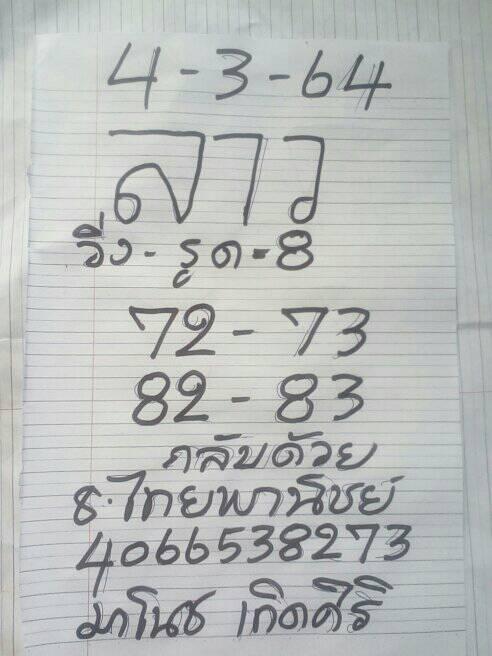 4-3-64
ลาว
วิ่ง-รูด-8
72-73
82-83
กลับด้วย
ธ.ไทยพานิชย์
4066538273
มาโนช เกิดศิริ